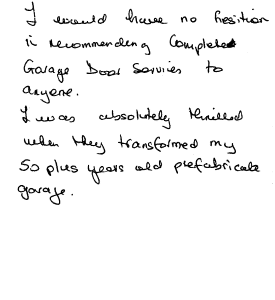 I would have no hesition
in recommending Complete
Garage Door Services to
anyone.
I was absolutely thrilled
when they transformed my
50 plus years old prefabricate
garage.